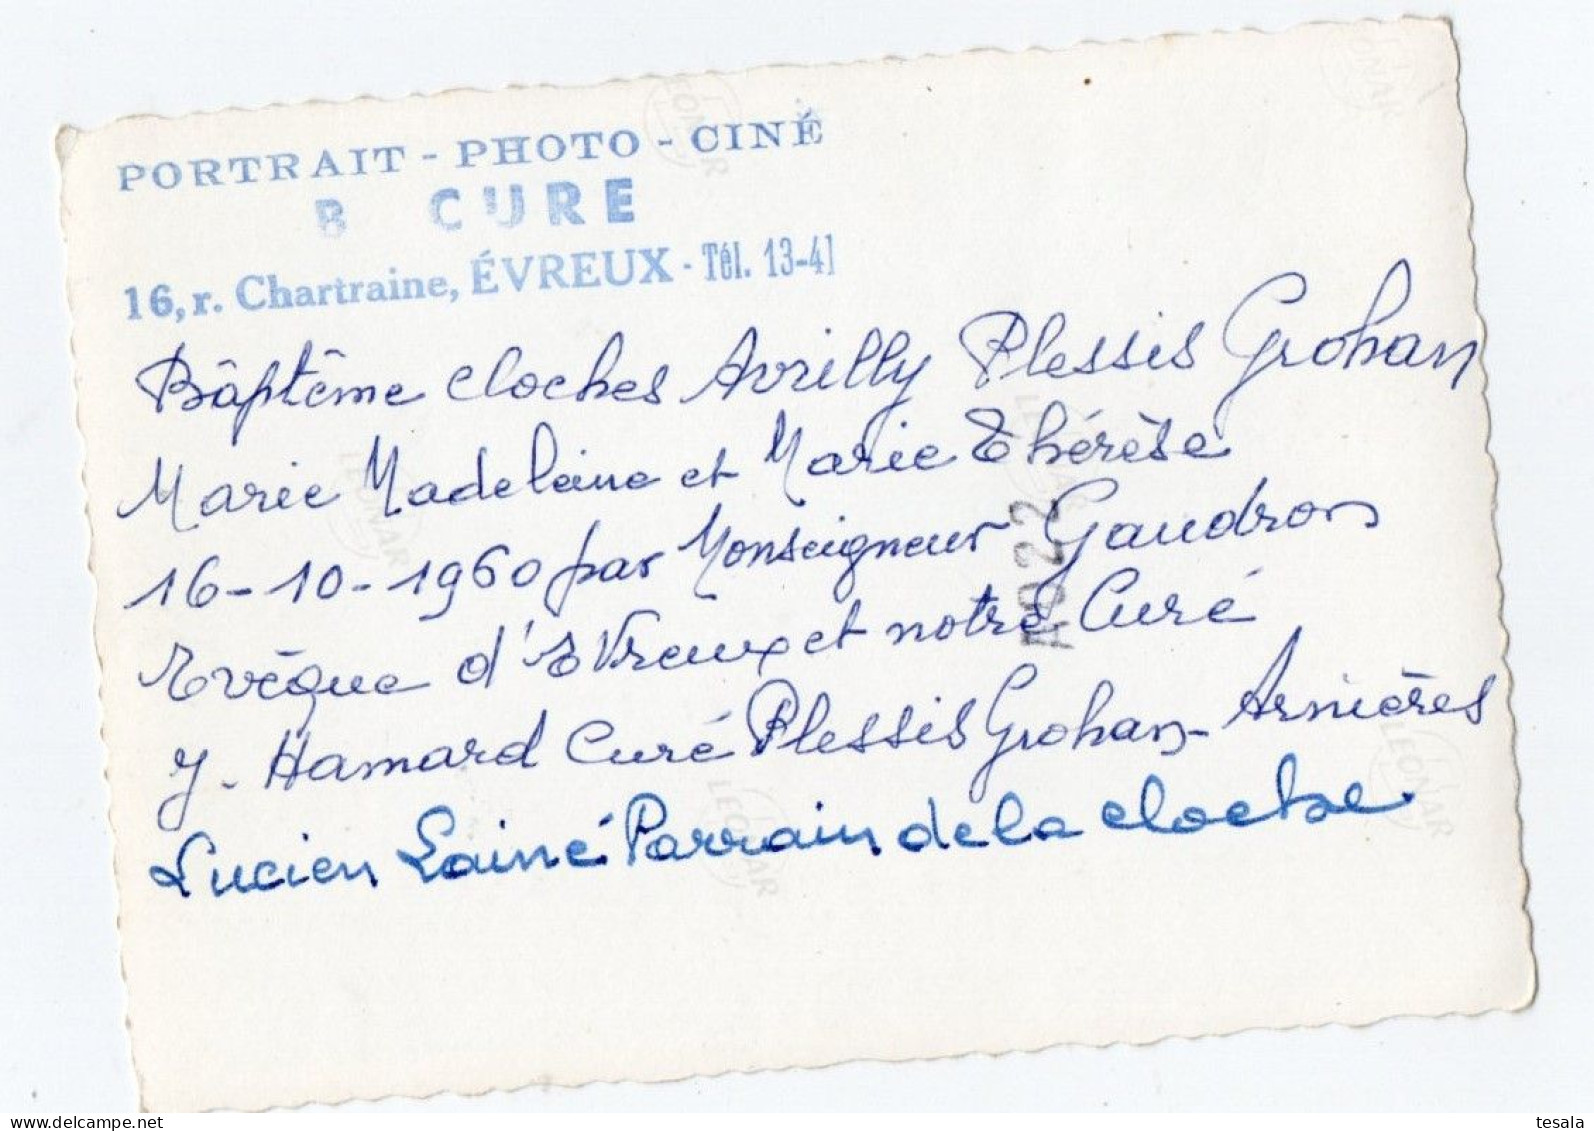 PORTRAIT - PHOTO - CINÉ
B CURE
16, r. Chartraine, ÉVREUX - Tél. 13-41
Bâptême cloches Avrilly Plessis Grohan
Marie Madeleine et Marie Thérèse
16-10-1960 par Monseigneur Gaudron
Evêque d'Evreux et notre Curé
J. Hamard Curé Plessis Grohan - Arnières
Lucien Lainé Parrain de la cloche
LEONAR
LEONAR
LEONAR
LEONAR
LEONAR
www.delcampe.net
tesala